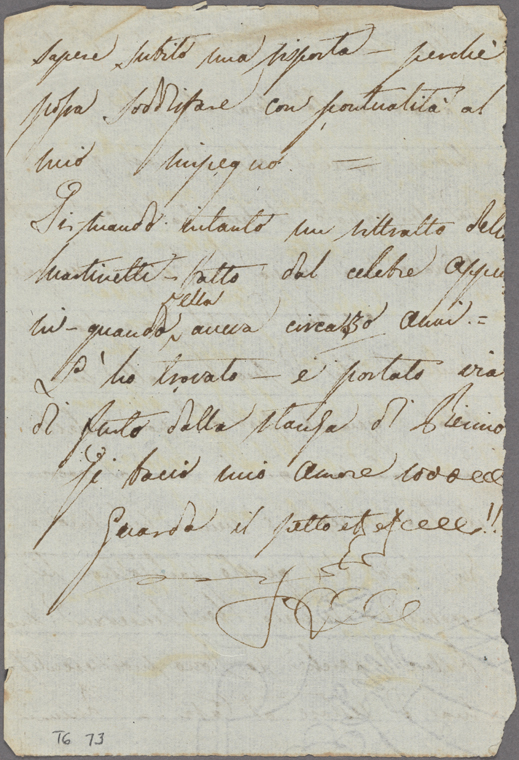 sapere subito una risposta — perchè
possa soddisfare con pontualità al
mio impegno. =
Ti mando intanto un rittratto della
Martinetti — fatto dal celebre Appia
ni — quando ella aveva circa 30 anni. =
L'ho trovato — e portato via
di furto dalla stanza di
Ti bacio mio amore 1000
Guarda il petto et et
T6 73